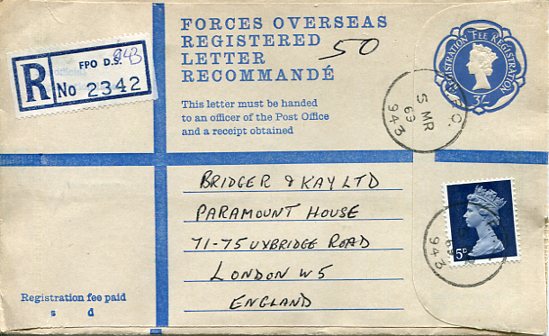 FORCES OVERSEAS
REGISTERED
LETTER
RECOMMANDÉ
50
This letter must be handed
to an officer of the Post Office
and a receipt obtained
R
FPO D.S. 943
No 2342
REGISTRATION FEE REGISTRATION
3/-
5 MR
69
943
BRIDGER & KAY LTD
PARAMOUNT HOUSE
71-75 UXBRIDGE ROAD
LONDON W5
ENGLAND
5D
69
943
Registration fee paid
s d